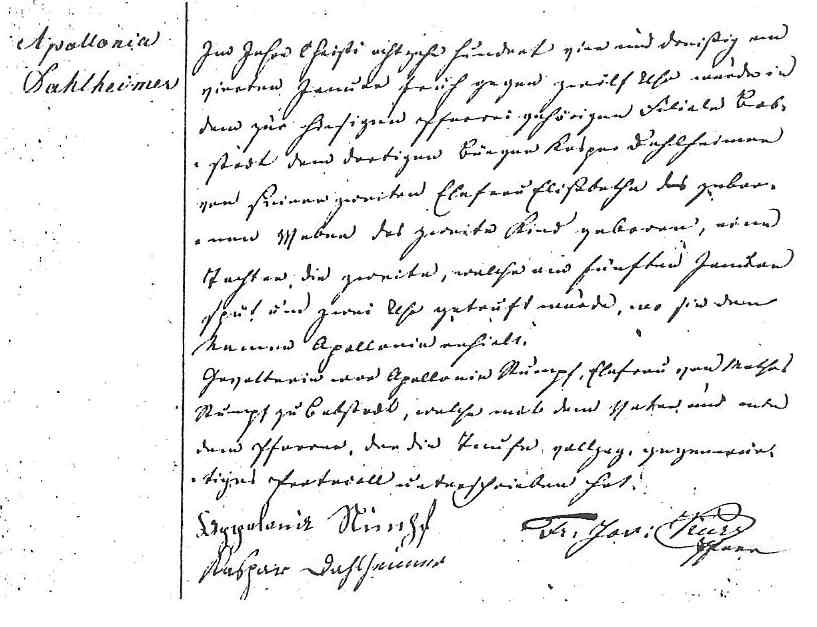 Apollonia
Dahlheimer
Im Jahre Christi achtzehn hundert vier und dreißig am
vierten Januar früh gegen zwölf Uhr wurde in
dem zur hiesigen Pfarrei gehörigen Filiale Bab-
stadt dem dortigen Bürger Kaspar Dahlheimer
von seiner zweiten Ehefrau Elisabetha des gebor-
nen Weber das zweite Kind geboren, eine
Tochter, die zweite, welche am fünften Januar
spät um zwei Uhr getauft wurde, wo sie den
Namen Apollonia erhielt.
Gevatterin war Apollonia Stumpf, Ehefrau von Mathes
Stumpf zu Babstadt, welche mit dem Vater und mir
dem Pfarrer, der die Taufe vollzog, gegenwär-
tiges Protocoll unterschrieben hat.
Appolonia Stumpf
Kaspar Dahlheimer
Fr. Jos. Kurz
Pfarrer